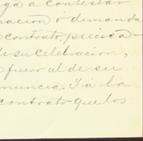 ga a contestar
nacion ó demanda
contrato, precisa-
de su celebracion,
fuero al de su
nuncia. Y á la
contrato que los